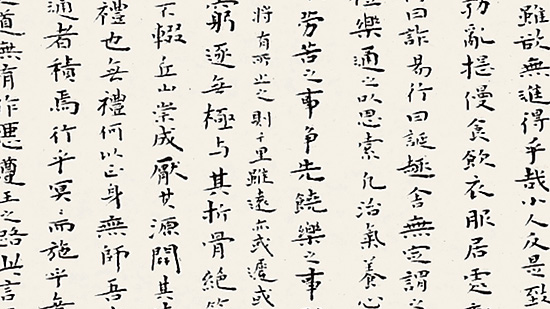 雖欲無進得乎哉小人反是致
勃亂提慢食飲衣服居處動
行曰詐易行曰誕趣舍無定謂之
禮樂通之以思索凡治氣養心
勞苦之事爭先饒樂之事
將有所止之則千里雖遠亦或遲或
窮逐無極与其折骨絕筋
不輟丘山崇成厭其源開其
禮也無禮何以正身無師吾
通者積焉行乎冥〻而施乎無
道無有作惡遵王之路此言